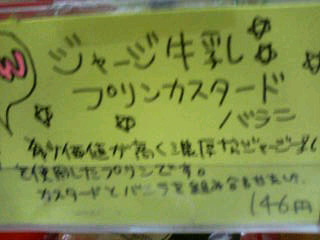 ジャージ牛乳
プリンカスタード
バラニ
価値が高く濃厚なジャージー
を使用したプリンです。
カスタードとバニラを組み合わせました
146円